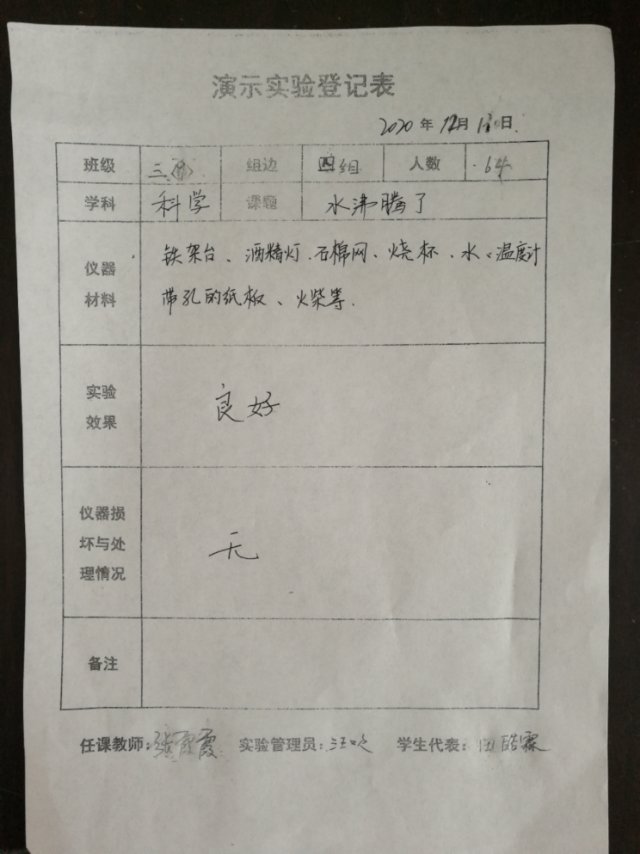 演示实验登记表
2020 年 12月 日
班级 三 组边 四组 人数 64
学科 科学 课题 水沸腾了
仪器材料 铁架台、酒精灯、石棉网、烧杯、水、温度计
带孔的纸板、火柴等
实验效果 良好
仪器损坏与处理情况 无
备注
任课教师: 霞 实验管理员: 汪 学生代表: 皓霖